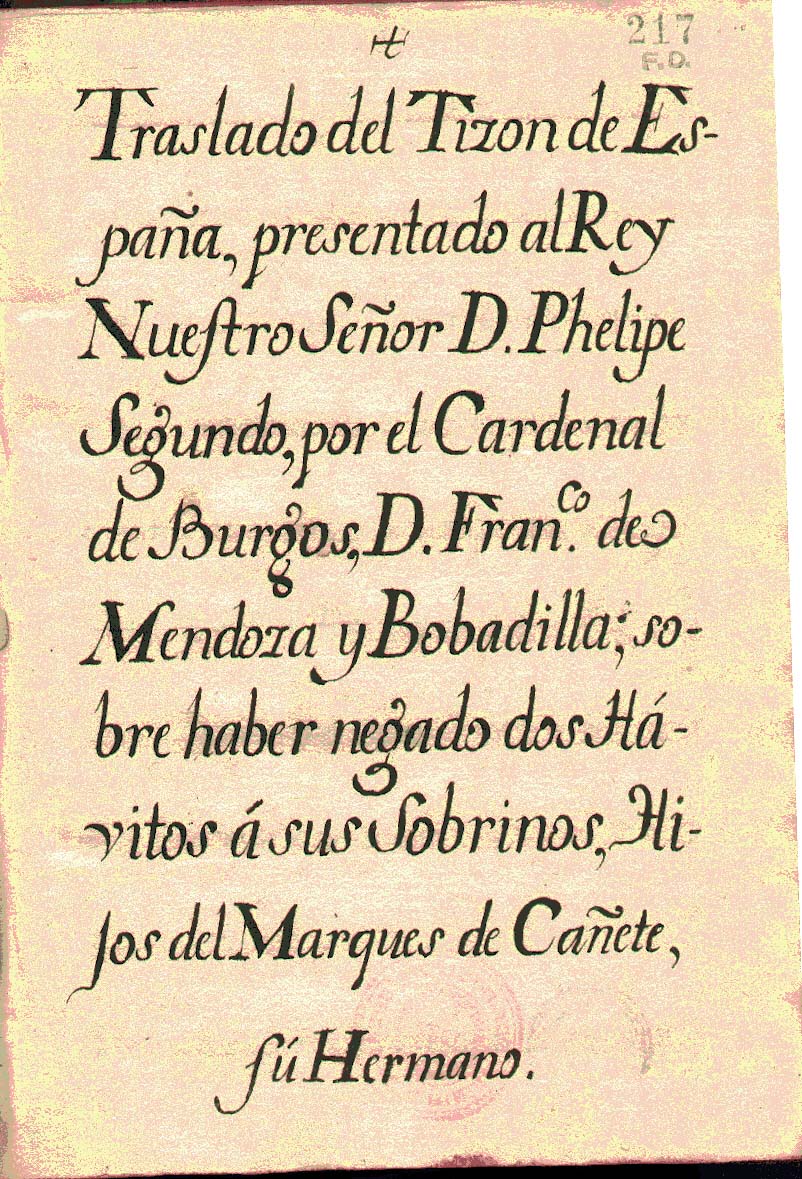 217
F.D.
Traslado del Tizon de Es-
paña, presentado al Rey
Nueſtro Señor D. Phelipe
Segundo, por el Cardenal
de Burgos, D. Fran.co de
Mendoza y Bobadilla; so-
bre haber negado dos Há-
vitos á sus Sobrinos, Hi-
jos del Marques de Cañete,
ſú Hermano.